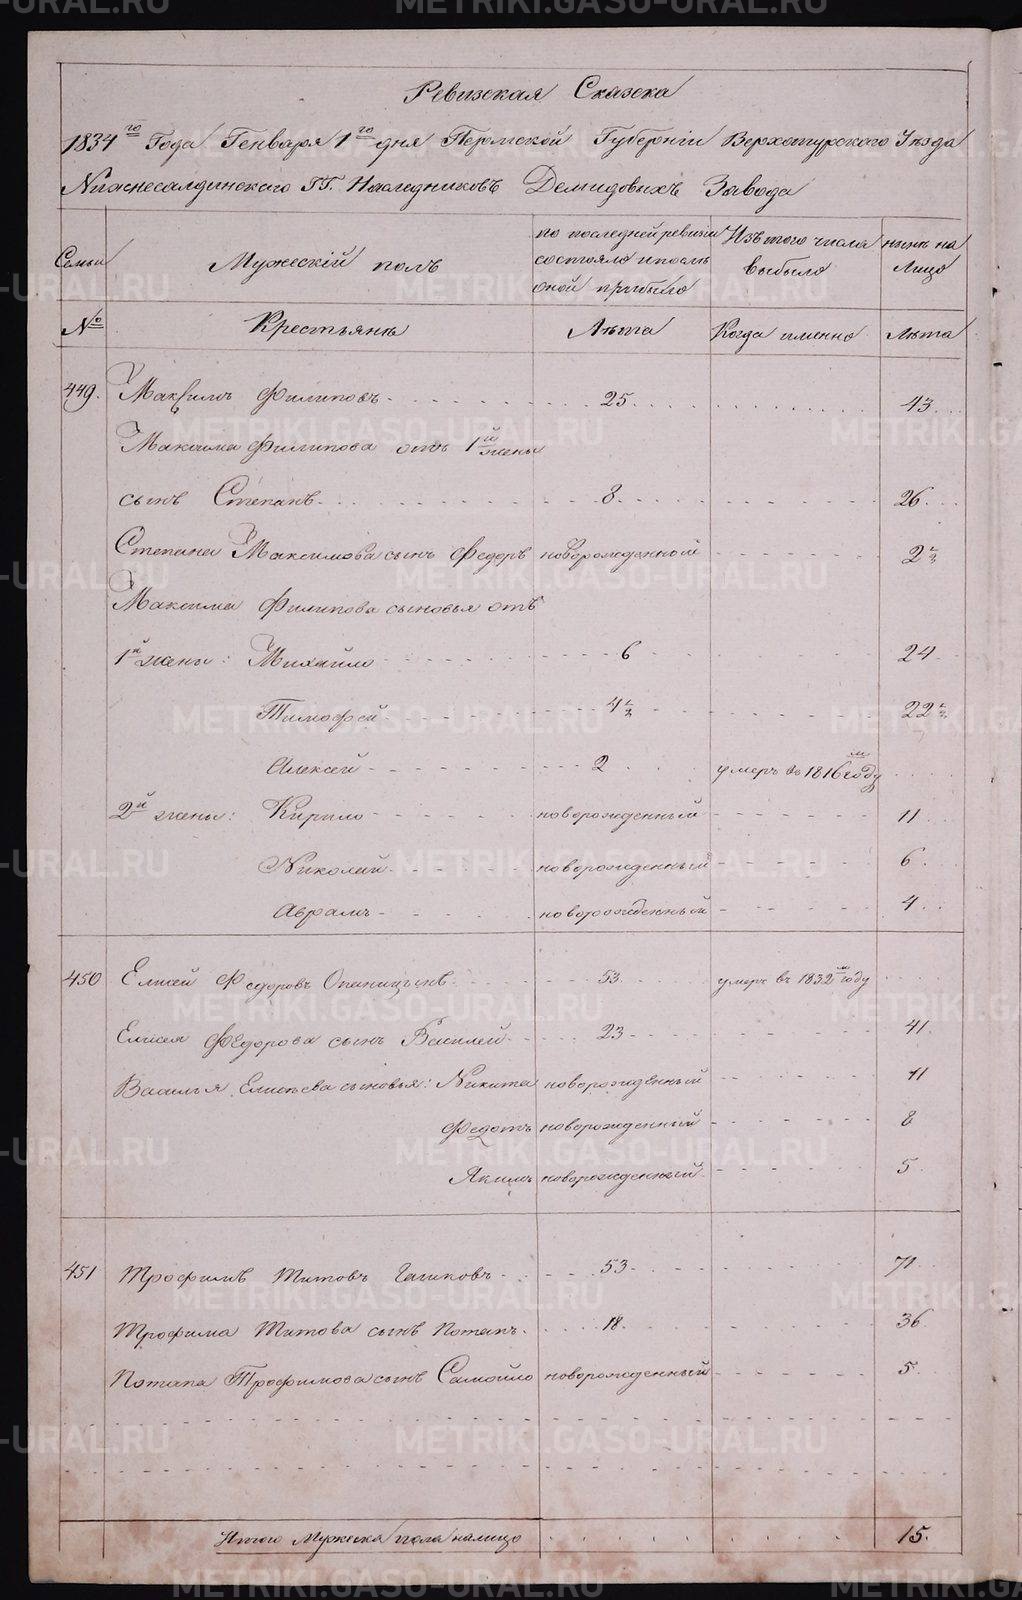 Ревизская Сказка
1834го Года Генваря 1го дня Пермской Губернiи Верхотурского Уѣзда
Нижнесалдинскаго ГГ. Наследниковъ Демидовыхъ Завода
Семьи Мужескiй полъ по последней ревизiи состояло и после оной прибыло Изъ того числа выбыло ныне на Лицо
№ Крестьяне Лѣта Когда именно Лѣта
449. Максимъ Филиповъ 25 43
Максима Филипова отъ 1й жены
сынъ Степанъ 8 26
Степана Максимова сынъ Федоръ новорожденной 2 ½
Максима Филипова сыновья отъ
1й жены: Михайло 6 24
Тимофей 4 ½ 22 ½
Алексей 2 умеръ во 1816м году
2й жены: Кирило новорожденный 11
Николай новорожденный 6
Аврамъ новорожденный 4
450 Елисей Федоровъ 53 умеръ въ 1832м году
Елисея Федорова сынъ Василей 23 41
Василья Елисѣева сыновья: Никита новорожденный 11
Федотъ новорожденный 8
Якимъ новорожденный 5
451 Трофимъ Титовъ 53 71
Трофима Титова сынъ Потапъ 18 36
Потапа Трофимова сынъ Самойло новорожденный 5
Итого Мужеска пола налицо 15.
METRIKI.GASO-URAL.RU